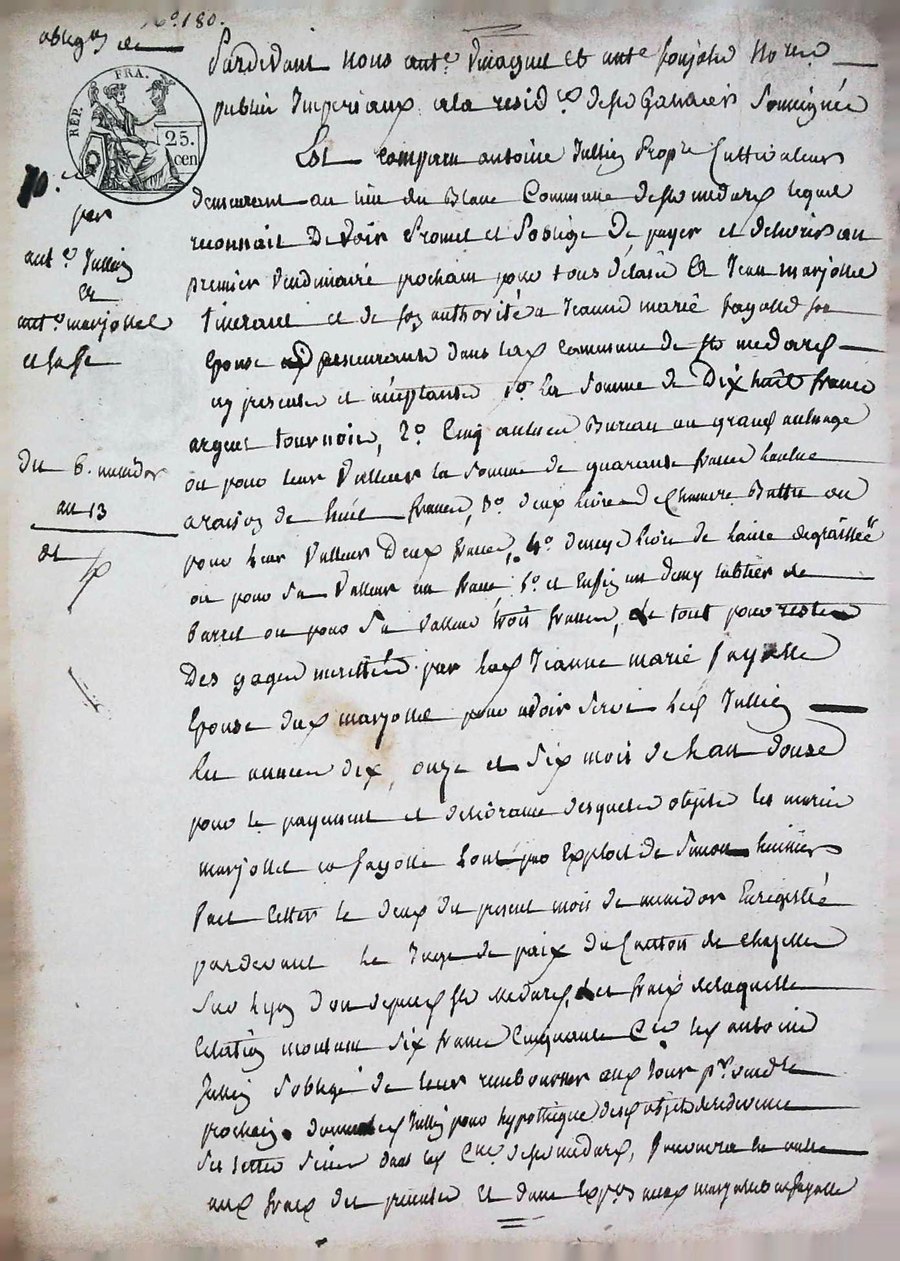 N.º 180.
obligaõn de
REP. FRA.
25. cen
70.
par
ant.e Jullien
a
ant.e marjollet
et sa fe
du 6. messidor
an 13
dt
Pardevant nous ant.e et ant.e Notres
publics Imperiaux a la resid.ce de St Galmier Soussignés
Est comparu antoine Jullien Prop.re Cultivateur
demeurant au lieu du Blanc Commune de St medard lequel
reconnait Devoir Promet et S'oblige De payer et delivrer au
premier Vendemiaire prochain pour tous delais a Jean marjollet
et de son authorité a Jeanne marie fayolle son
Epouse demeurants dans lad. Commune de St medard
cy presents et acceptants 1.º la Somme de Dix huit francs
argent tournois, 2.º Cinq aulnes Bureau au grand aulnage
ou pour leur Valleur la Somme de quarante francs l'aulne
a raison de huit francs, 3.º deux livres de Chanvre Battu ou
pour leur Valleur Deux francs, 4.º demy livre de laine degraissée
ou pour Sa Valleur un franc 5.º et Enfin un demy
ou pour Sa Valleur trois francs, Le tout pour reste
Des gages merittés par lad. Jeanne marie fayolle
Epouse dud. marjollet pour avoir Servi led. Jullien
les années dix, onze et Six mois de L'an douze
pour le payement et delivrance desquels objets les mariés
marjollet et fayolle L'ont par Exploit de Simon huissier
fait Citter le deux du present mois de messidor Enregistré
pardevant le Juge de paix du Canton de Chazelles
Sur Lyon d'ou depend St Medard, et les fraix de laquelle
Citation montant Six francs Cinquante C.es led. antoine
Jullien S'oblige de leur rembourser aux Jour p.er vendre
prochain. donne led. Jullien pour hypotheque desd. objets
Ses Situés dans lad. C.ne de St medard,
aux fraix des presentes Et dont Exp.on auxd. marjollet et fayolle